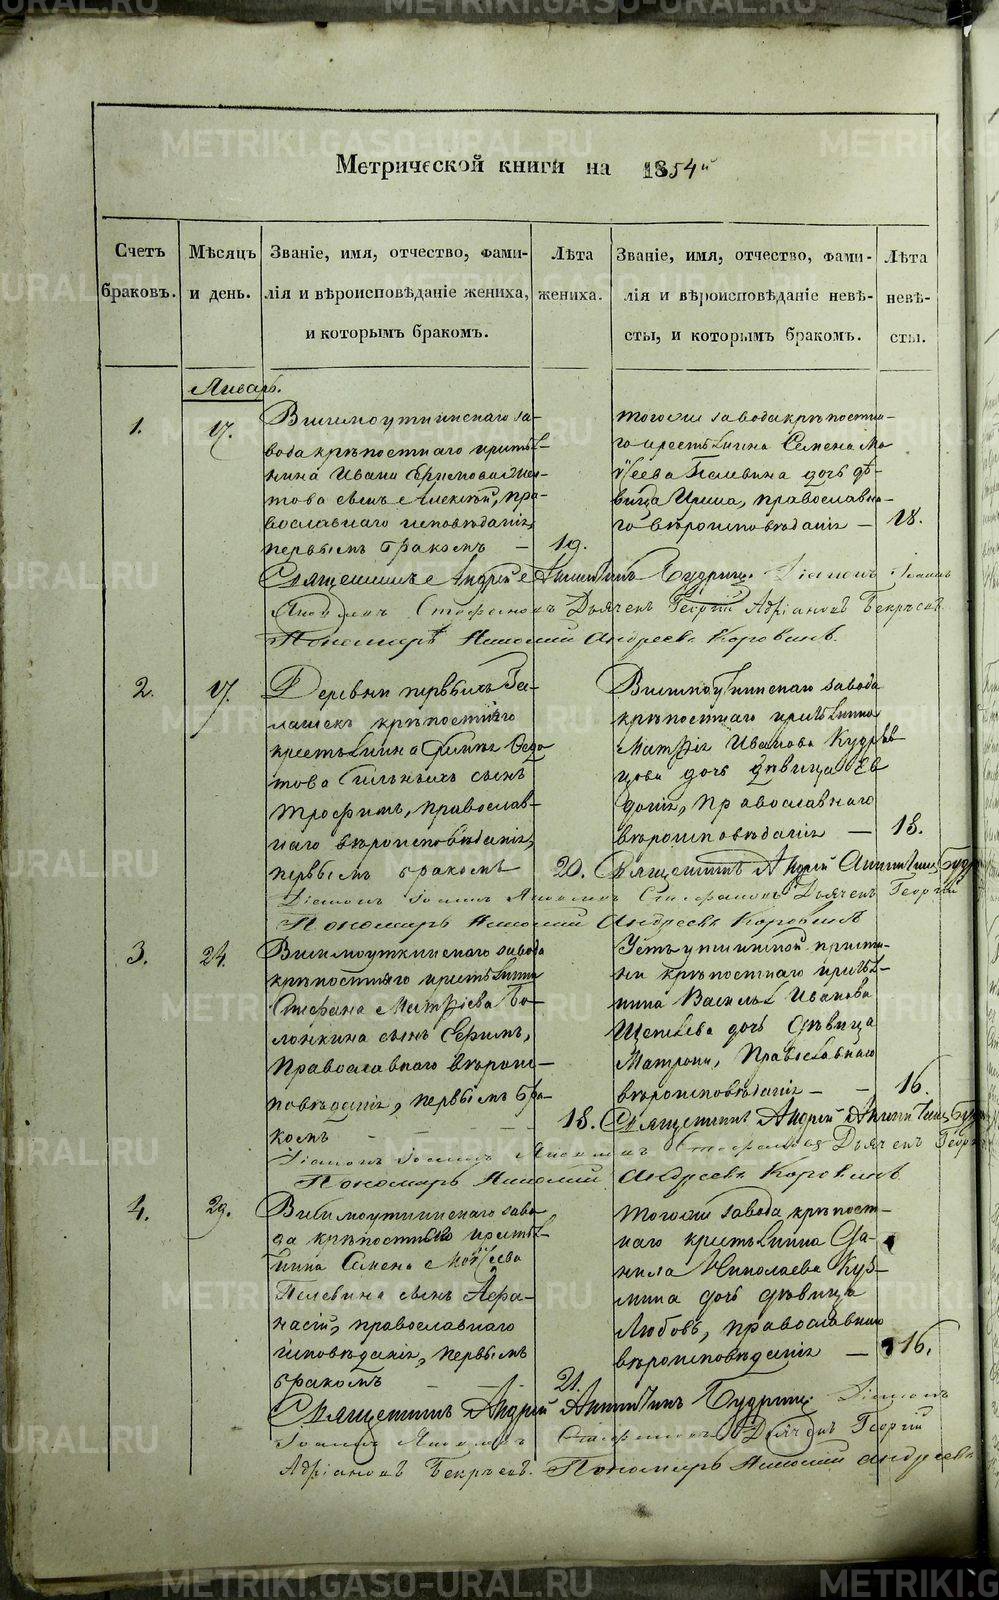 METRIKI.GASO-URAL.RU
Метрической книги на 1854й
Счетъ браковъ.
Мѣсяцъ и день.
Званіе, имя, отчество, фами-
лія и вѣроисповѣданіе жениха,
и которымъ бракомъ.
Лѣта жениха.
Званіе, имя, отчество, фами-
лія и вѣроисповѣданіе невѣ-
сты, и которымъ бракомъ.
Лѣта невѣ-
сты.
Январь.
1.
17.
Висимоуткинскаго за-
вода крѣпостнаго крестья-
нина Ивана
сынъ Алексѣй, пра-
вославнаго исповѣданія,
первымъ бракомъ —
19.
того же завода крѣпостна-
го крестьянина Семена Мо-
ѵсеева Пелевина дочь дѣ-
вица Ирина, православна-
го вѣроисповѣданія —
18.
Священникъ Андрей Будринъ Діаконъ Іоаннъ
Яковлевъ Стефановъ Дьячекъ Георгій Адріановъ Бекрѣевъ
Пономарь Николай Андреевъ Коровинъ.
2.
17.
Деревни первыхъ Га-
лашекъ крѣпостнаго
крестьянина Ѳедо
това сынъ
Трофимъ, православ-
наго вѣроисповѣданія,
первымъ бракомъ
20.
Висимоуткинскаго завода
крѣпостнаго крестьянина
Иванова Кудряв
цова дочь дѣвица Ев
докія, православнаго
вѣроисповѣданія —
18.
Священникъ Андрей
Діаконъ Іоаннъ Яковлевъ Стефановъ Дьячекъ Георгій
Пономарь Николай Андреевъ Коровинъ
3.
24.
Висимоуткинскаго завода
крѣпостнаго крестьянина
Стефана
сынъ Ефимъ,
Православнаго вѣрои-
повѣданія, первымъ бра-
комъ
18.
Устьуткинской приста-
ни крѣпостнаго крестья-
нина Василья Иванова
дочь дѣвица
Матрона, Православнаго
вѣроисповѣданія — —
16.
Священникъ Андрей
Діаконъ Іоаннъ Яковлевъ Стефановъ Дьячекъ Георгій
Пономарь Николай Андреевъ Коровинъ
4.
29.
Висимоуткинскаго заво-
да крѣпостнаго крестья-
нина Семена Моѵсеева
Пелевина сынъ Афа-
насій, православнаго
исповѣданія, первымъ
бракомъ
21.
того же завода крѣпост-
наго крестьянина Да-
нила Николаева Кузь-
мина дочь дѣвица
Любовь, православнаго
вѣроисповѣданія —
16.
Священникъ Андрей Будринъ Діаконъ
Іоаннъ Яковлевъ Стефановъ Дьячекъ Георгій
Адріановъ Бекрѣевъ. Пономарь Николай Андреевъ
METRIKI.GASO-URAL.RU